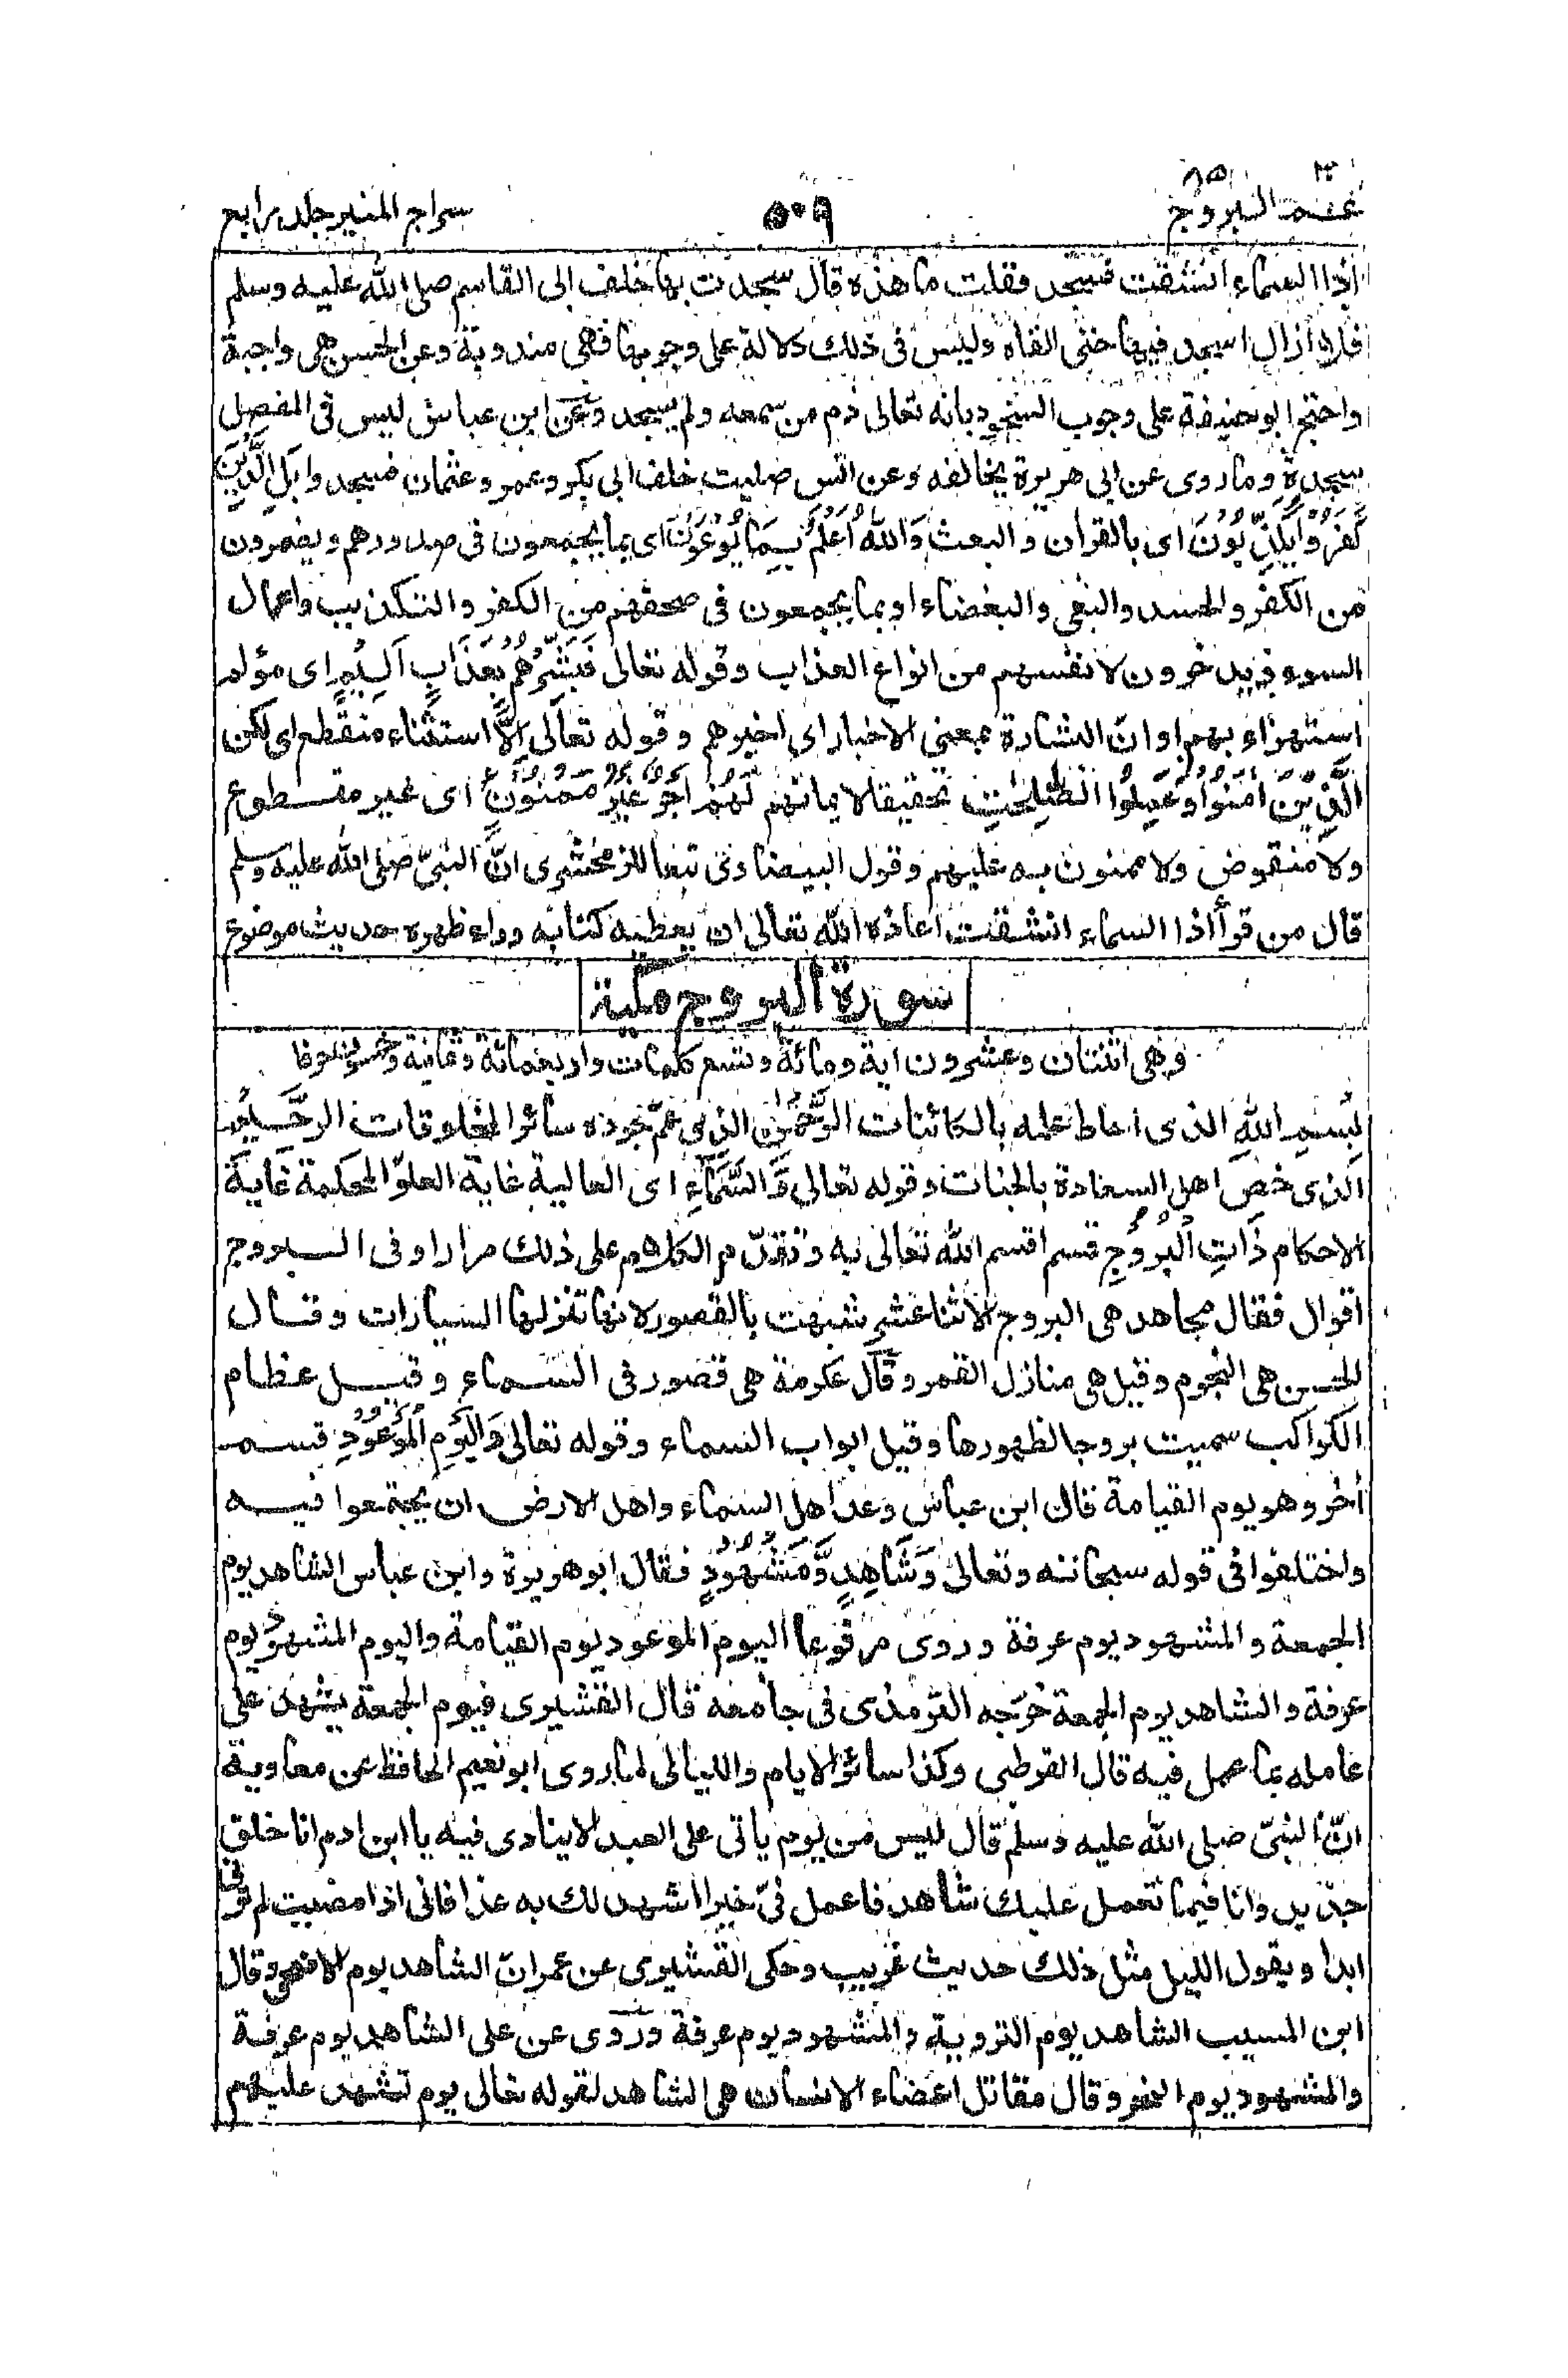 عم ٣٠ البروج ٨٥
٥٠٩
سراج المنير جلد رابع
اذا السماء انشقت فسجد فقلت ما هذه قال سجدت بها خلف ابى القاسم صلى الله عليه وسلم
فلا ازال اسجد فيها حتى القاه وليس فى ذلك دلالة على وجوبها فهى مندوبة وعن الحسن هى واجبة
واحتج ابو حنيفة على وجوب السجود بانه تعالى ذم من سمعه ولم يسجد وعن ابن عباس ليس فى المفصل
سجدة وما روى عن ابى هريرة يخالفه وعن انس صليت خلف ابى بكر وعمر وعثمان فسجدوا بَلِ الَّذِيْنَ
كَفَرُوْا يُكَذِّبُوْنَ اى بالقرأن والبعث وَاللّٰهُ اَعْلَمُ بِمَا يُوْعُوْنَ اى بما يجمعون فى صدورهم ويضمرون
من الكفر والحسد والبغى والبغضاء او بما يجمعون فى صحفهم من الكفر والتكذيب واعمال
السوء ويدخرون لانفسهم من انواع العذاب وقوله تعالى فَبَشِّرْهُمْ بِعَذَابٍ اَلِيْمٍ اى مؤلم
استهزاء بهم او انّ البشارة بمعنى الاخبار اى اخبرهم وقوله تعالى اِلَّا استثناء منقطع اى لكن
الَّذِيْنَ اٰمَنُوْا وَعَمِلُوا الصّٰلِحٰتِ تحقيقا لايمانهم لَهُمْ اَجْرٌ غَيْرُ مَمْنُوْنٍ اى غير مقطوع
ولا منقوض ولا ممنون به عليهم وقول البيضاوى تبعا للزمخشرى انّ النبىّ صلى الله عليه وسلم
قال من قرأ اذا السماء انشقت اعاذه الله تعالى ان يعطيه كتابه وراء ظهره حديث موضوع
سورة البروج مكية
وهى اثنتان وعشرون اية ومائة وتسع كلمات واربعمائة وثمانية وخمسون حرفا
بِسْمِ اللّٰهِ الذى احاط علمه بالكائنات الرَّحْمٰنِ الذى عمّ جوده سائر المخلوقات الرَّحِيْمِ
الذى خص اهل السعادة بالجنات وقوله تعالى وَالسَّمَآءِ اى العالية غاية العلوّ المحكمة غاية
الاحكام ذَاتِ الْبُرُوْجِ قسم اقسم الله تعالى به وتقدّم الكلام على ذلك مرارا وفى البروج
اقوال فقال مجاهد هى البروج الاثنا عشر شبهت بالقصور لانها تنزلها السيارات وقال
الحسن هى النجوم وقيل هى منازل القمر وقال عكرمة هى قصور فى السماء وقيل عظام
الكواكب سميت بروجا لظهورها وقيل ابواب السماء وقوله تعالى وَالْيَوْمِ الْمَوْعُوْدِ قسم
أخر وهو يوم القيامة قال ابن عباس وعد اهل السماء واهل الارض ان يجتمعوا فيه
واختلفوا فى قوله سبحانه وتعالى وَشَاهِدٍ وَّمَشْهُوْدٍ فقال ابو هريرة وابن عباس الشاهد يوم
الجمعة والمشهود يوم عرفة وروى مرفوعا اليوم الموعود يوم القيامة واليوم المشهود يوم
عرفة والشاهد يوم الجمعة خرّجه الترمذى فى جامعه قال القشيرى فيوم الجمعة يشهد على
عامله بما عمل فيه قال القرطبى وكذا سائر الايام والليالى لما روى ابو نعيم الحافظ عن معاوية
انّ النبىّ صلى الله عليه وسلم قال ليس من يوم ياتى على العبد الا ينادى فيه يا ابن ادم انا خلق
جديد وانا فيما تعمل عليك شاهد فاعمل فىّ خيرا اشهد لك به غدا فانى اذا مضيت لم ترنى
ابدا ويقول الليل مثل ذلك حديث غريب وحكى القشيرى عن عمر انّ الشاهد يوم الاضحى وقال
ابن المسيب الشاهد يوم التروية والمشهود يوم عرفة وروى عن على الشاهد يوم عرفة
والمشهود يوم النحر وقال مقاتل اعضاء الانسان هى الشاهد لقوله تعالى يوم تشهد عليهم